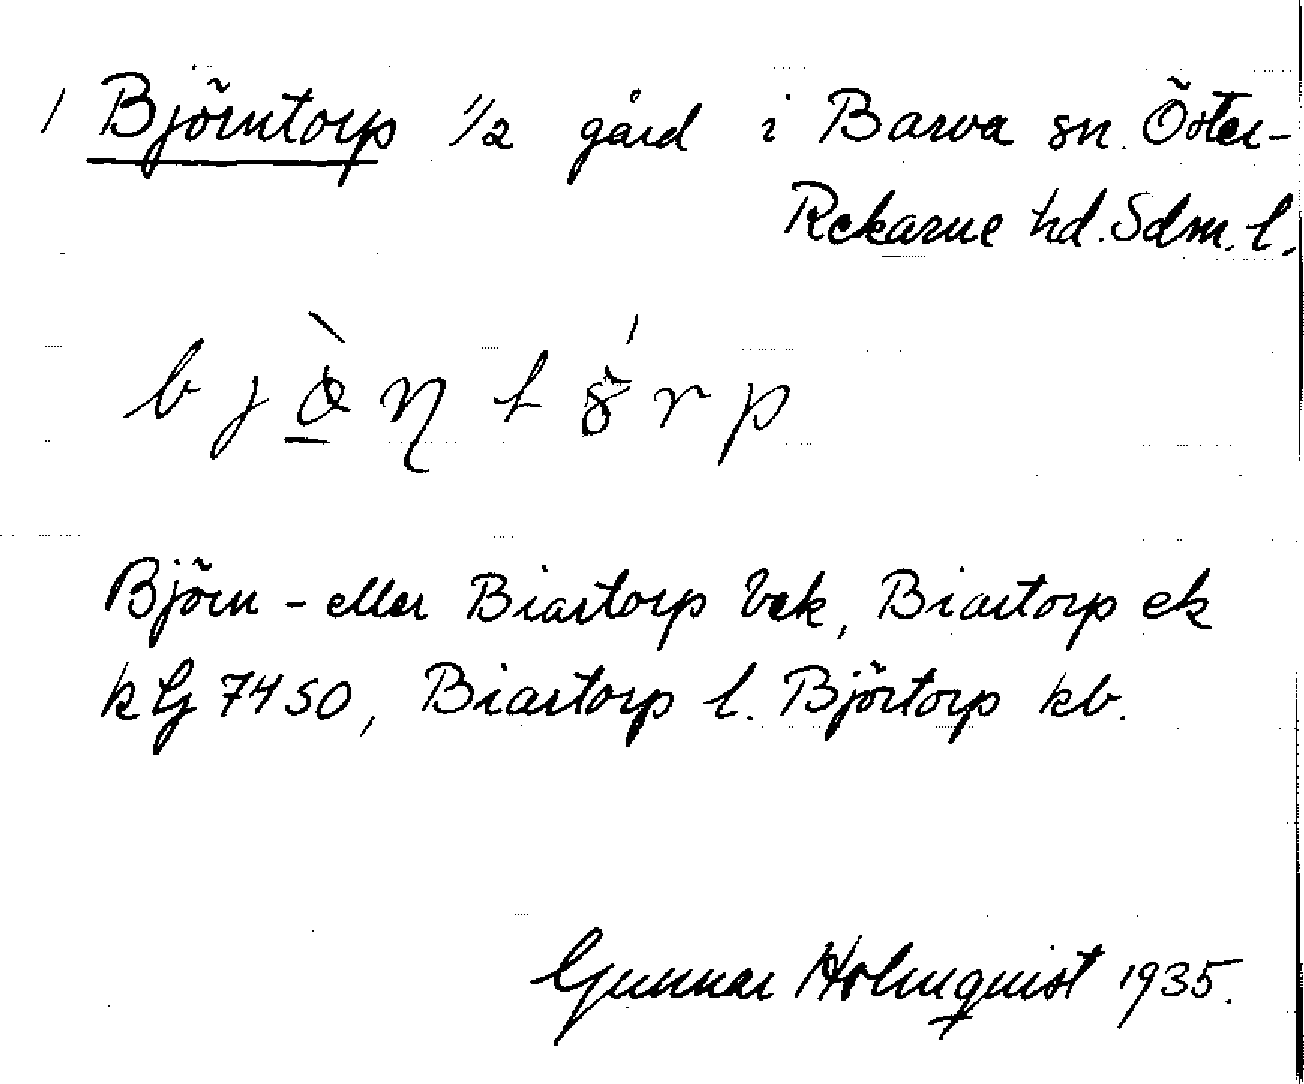 / Björntorp 1/2 gård i Barva sn. Öster-
Rekarne hd. Sdm. l.
Björn- eller Biartorp bek, Biartorp ek
k Lj 7450, Biartorp l. Björtorp kb.
Gunnar Holmquist 1935.